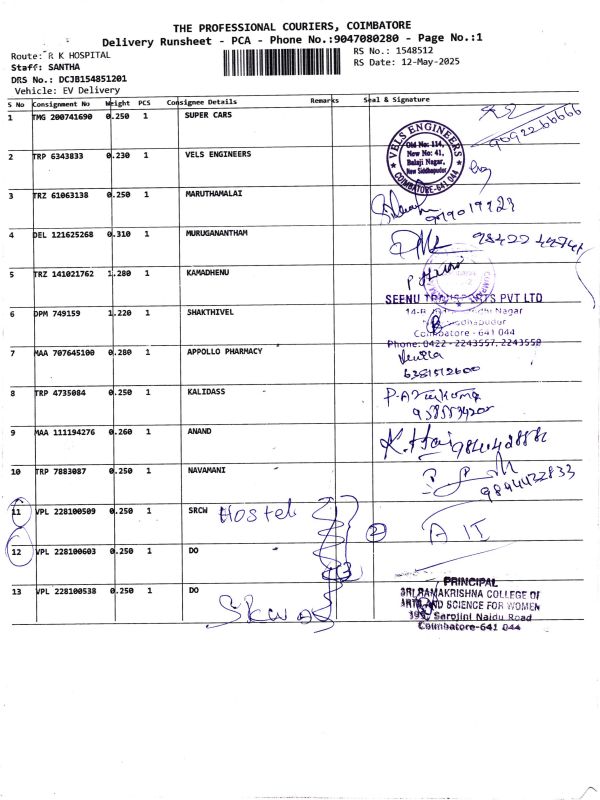 THE PROFESSIONAL COURIERS, COIMBATORE
Delivery Runsheet - PCA - Phone No.:9047080280 - Page No.:1
Route: R K HOSPITAL
RS No.: 1548512
Staff: SANTHA
RS Date: 12-May-2025
DRS No.: DCJB154851201
Vehicle: EV Delivery
S No Consignment No Weight PCS Consignee Details Remarks Seal & Signature
1 TMG 200741690 0.250 1 SUPER CARS
9592266666
2 TRP 6343833 0.230 1 VELS ENGINEERS
VELS ENGINEERS
Old No: 114,
New No: 41,
Balaji Nagar,
New Siddhapudur
COIMBATORE-641 044
3 TRZ 61063138 0.250 1 MARUTHAMALAI
4 DEL 121625268 0.310 1 MURUGANANTHAM
5 TRZ 141021762 1.280 1 KAMADHENU
SEENU TRANSPORTS PVT LTD
6 DPM 749159 1.220 1 SHAKTHIVEL
Nagar
Coimbatore - 641 044
Phone: 0422 - 2243557, 2243558
7 MAA 707645100 0.280 1 APPOLLO PHARMACY
6381512600
8 TRP 4735084 0.250 1 KALIDASS
9 MAA 111194276 0.260 1 ANAND
10 TRP 7883087 0.250 1 NAVAMANI
9894422833
11 VPL 228100509 0.250 1 SRCW Hostel
12 VPL 228100603 0.250 1 DO
2
13 VPL 228100538 0.250 1 DO
PRINCIPAL
SRI RAMAKRISHNA COLLEGE OF
ARTS AND SCIENCE FOR WOMEN
395, Sarojini Naidu Road
Coimbatore-641 044